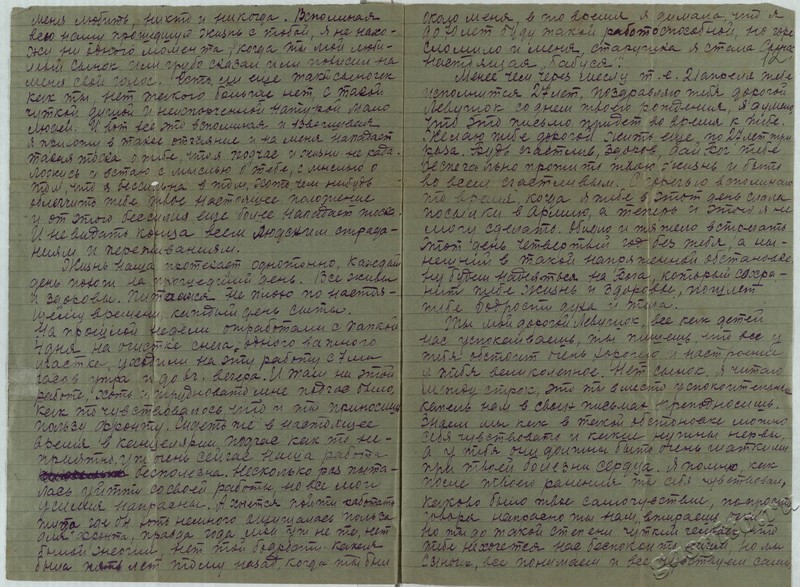 меня любить, никто и никогда. Вспоминая
всю нашу прошедшую жизнь с тобой, я не нахо-
жу ни одного момента, когда ты мой люби-
мый сынок или грубо сказал или повысил на
меня свой голос. Есть ли еще такой сыночек
как ты, нет, такого больше нет, с такой
чуткой душой и неиспорченной натурой мало
людей. И вот все это вспоминая и взвешивая
я прихожу в такое отчаяние и на меня нападает
такая тоска о тебе, что я подчас и жизни не рада.
Ложусь и встаю с мыслью о тебе, с мыслью о
том, что я бессильна в том, хотя чем нибудь
облегчить тебе твое настоящее положение
и от этого бессилия еще более нападает тоска.
И не видать конца всем людским страда-
ниям и переживаниям.
Жизнь наша протекает однотонно, каждый
день похож на прошедший день. Все живы
и здоровы. Питаемся не плохо по настоя-
щему времени каждый день сыты.
На прошлой недели отработали с папкой
4 дня на очистке снега, одного важного
участка, уходили на эту работу с 7 ми
часов утра и до 6 г. вечера. И там на этой
работе, хоть и трудновато мне подчас было,
как то чувствовалось, что и ты приносишь
пользу фронту. Сидеть же в настоящее
время в канцелярии, подчас как то не-
приятно, уж очень сейчас наша работа
бесполезна. Несколько раз пыта-
лась уйти со своей работы, но все мои
усилия напрасны. А хочется пойти работать
туда где бы хоть немного ощущалась польза
для фронта, правда года мои уж не те, нет
былой энергии, нет той бодрости какая
была пять лет тому назад, когда ты был
около меня, в то время я думала, что я
до 70 лет буду такой работоспособной, но горе
сломило и меня, старушка я стала
настоящая, "бабуся".
Менее чем через месяц т. е. 21 апреля тебе
исполнится 27 лет. Поздравляю тебя дорогой
Левушок со днем твоего рождения, я думаю
что это письмо придет во время к тебе.
Желаю тебе дорогой жить еще, по 27 лет три
раза. Будь счастлив, здоров, дай Бог тебе
беспечально прожить твою жизнь и быть
во всем счастливым. С грустью вспоминаю
то время, когда я тебе в этот день слала
посылки в Армию, а теперь и этого я не
могу сделать. Обидно и тяжело встречать
этот день четвертый год без тебя, а ны-
нешний в такой напряженной обстановке
Ну будем надеяться на Бога, который сохра-
нит тебе жизнь и здоровье, пошлет
тебе бодрости духа и тела.
Ты мой дорогой Левушок, все как детей
нас успокаиваешь, ты пишешь, что все у
тебя обстоит очень хорошо и настроение
у тебя великолепное. Нет сынок, я читаю
между строк, это ты вместо успокоительных
капель нам в своих письмах преподносишь.
Знаем мы как в такой обстановке можно
себя чувствовать и какие нужны нервы
а у тебя они должны быть очень шаткими
при твоей болезни сердца. Я помню, как
после твоего ранения ты себя чувствовал,
каково было твое самочувствие, попросту
говоря напрасно ты нам втираешь очки
Но ты до такой степени чуткий человек, что
тебе не хочется нас беспокоить собой, но мы
сыночек, все понимаем и все чувствуем сами